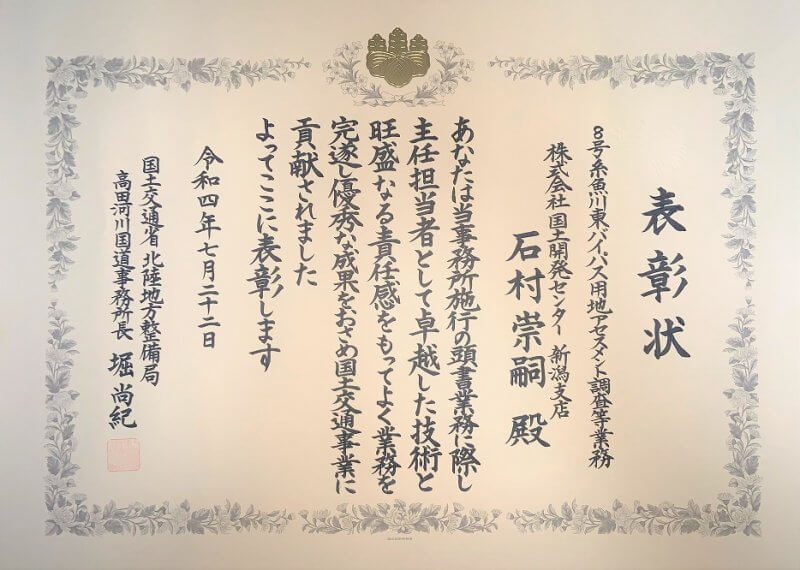 表彰状
8号糸魚川東バイパス用地アセスメント調査等業務
株式会社国土開発センター 新潟支店
石村崇嗣 殿
あなたは当事務所施行の頭書業務に際し
主任担当者として卓越した技術と
旺盛なる責任感をもってよく業務を
完遂し優秀な成果をおさめ国土交通事業に
貢献されました
よってここに表彰します
令和四年七月二十二日
国土交通省 北陸地方整備局
高田河川国道事務所長 堀 尚紀